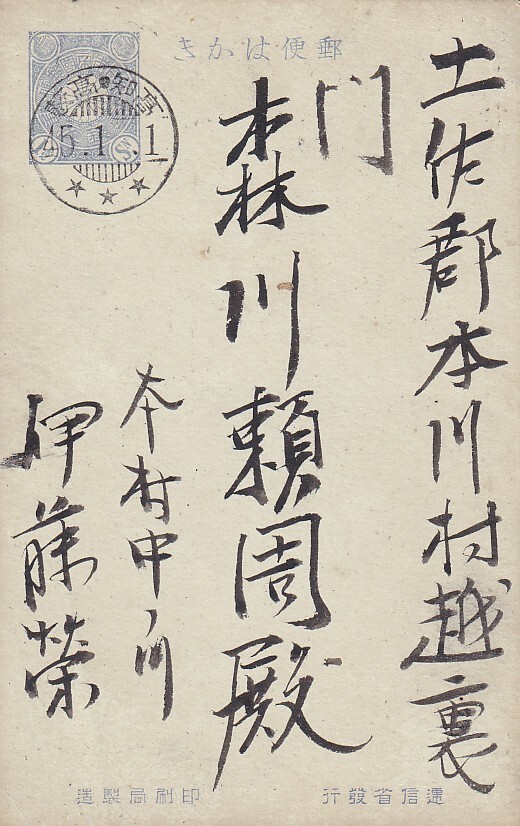 郵便はかき
高知・高知
45.1.1
土佐郡本川村越裏
門
森川頼周殿
本村中ノ川
伊藤榮
遞信省發行
印刷局製造